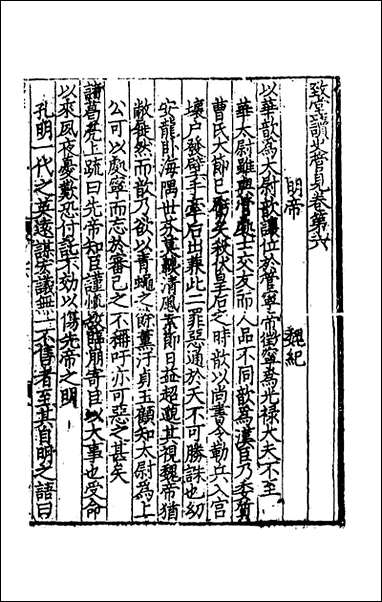 致堂讀史管見卷第六
明帝　魏紀
以華歆為太尉歆讓位於管寧帝徵寧為光祿大夫不至
華太尉雖與管處士交友而人品不同歆為漢臣乃委質
曹氏大節已虧矣秋伏皇后之時歆以尚書令勒兵入宮
壞户發壁手牽后出蓺此二罪惡通於天不可勝誅也幼
安龍卧海隅世亦莫親清風素節日益超邈其視魏帝猶
敝雖然而歆乃欲以青蠅之餘薰汙貞玉顧知太尉為上
公可以處寧而忘於審己之不稱吁亦可惡之甚矣
諸葛亮上疏曰先帝知臣謹慎故臨崩寄臣以大事也受命
以來夙夜憂歎恐付託不効以傷先帝之明
孔明一代之英遠謀宏議無一不售者至其自明之語曰